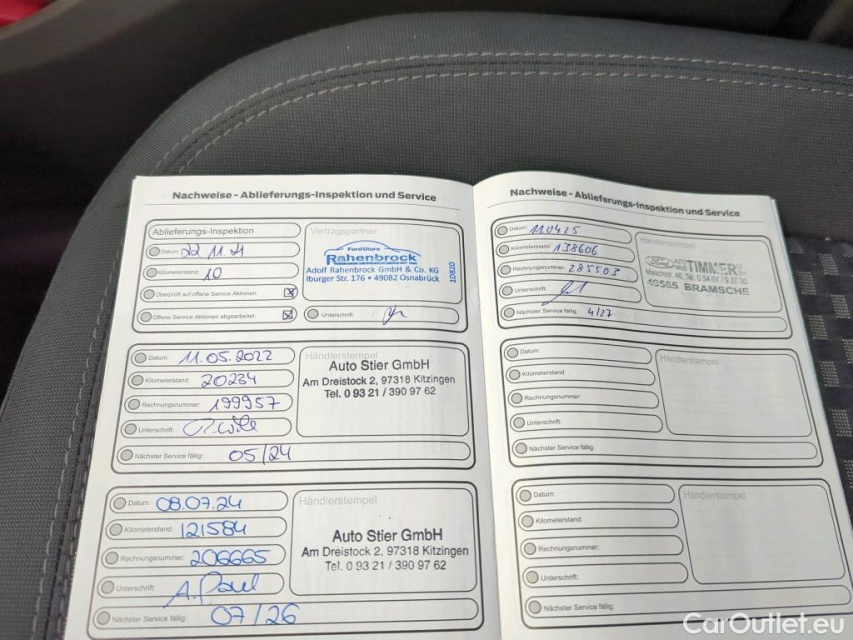 Nachweise - Ablieferungs-Inspektion und Service
Ablieferungs-Inspektion
Datum: 22 11 21
Kilometerstand: 10
Überprüft auf offene Service Aktionen:
Offene Service Aktionen abgearbeitet:
Vertragspartner
FordStore
Rahenbrock
Adolf Rahenbrock GmbH & Co. KG
Iburger Str. 176 • 49082 Osnabrück
10820
Unterschrift:
Datum: 11.05.2022
Kilometerstand: 20234
Rechnungsnummer: 199957
Unterschrift:
Nächster Service fällig: 05/24
Händlerstempel
Auto Stier GmbH
Am Dreistock 2, 97318 Kitzingen
Tel. 0 93 21 / 390 97 62
Datum: 08.07.24
Kilometerstand: 121584
Rechnungsnummer: 206665
Unterschrift: A. Paul
Nächster Service fällig: 07/26
Händlerstempel
Auto Stier GmbH
Am Dreistock 2, 97318 Kitzingen
Tel. 0 93 21 / 390 97 62
Nachweise - Ablieferungs-Inspektion und Service
Datum: 110425
Kilometerstand: 138606
Rechnungsnummer: 285503
Unterschrift:
Nächster Service fällig: 4/27
Händlerstempel
TIMMER
BRAMSCHE
Datum:
Kilometerstand:
Rechnungsnummer:
Unterschrift:
Nächster Service fällig:
Händlerstempel
Datum:
Kilometerstand:
Rechnungsnummer:
Unterschrift:
Nächster Service fällig:
Händlerstempel
CarOutlet.eu